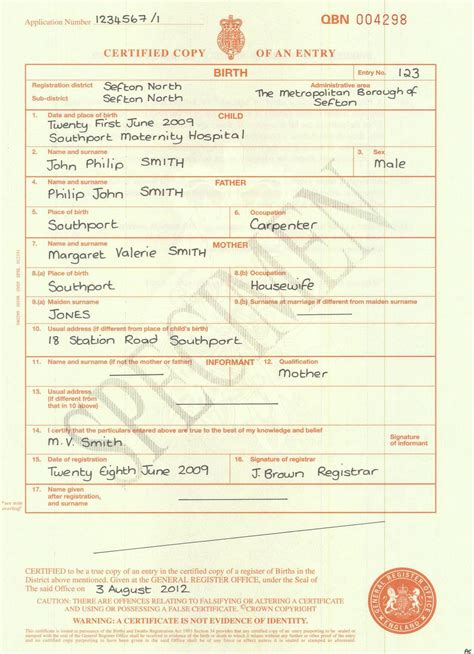 Application Number 1234567/1
QBN 004298
CERTIFIED COPY OF AN ENTRY
BIRTH
Entry No. 123
Registration district Sefton North
Administrative area
Sub-district Sefton North
The Metropolitan Borough of Sefton
1. Date and place of birth CHILD
Twenty First June 2009
Southport Maternity Hospital
2. Name and surname
John Philip SMITH
3. Sex
Male
4. Name and surname FATHER
Philip John SMITH
5. Place of birth
Southport
6. Occupation
Carpenter
7. Name and surname MOTHER
Margaret Valerie SMITH
8.(a) Place of birth
Southport
8.(b) Occupation
Housewife
9.(a) Maiden surname
JONES
9.(b) Surname at marriage if different from maiden surname
10. Usual address (if different from place of child's birth)
18 Station Road Southport
11. Name and surname (if not the mother or father) INFORMANT
12. Qualification
Mother
13. Usual address
(if different from
that in 10 above)
14. I certify that the particulars entered above are true to the best of my knowledge and belief
M.V. Smith
Signature
of informant
15. Date of registration
Twenty Eighth June 2009
16. Signature of registrar
J. Brown Registrar
17. Name given
after registration,
and surname
*see note
overleaf
SPECIMEN
CERTIFIED to be a true copy of an entry in the certified copy of a register of Births in the
District above mentioned. Given at the GENERAL REGISTER OFFICE, under the Seal of
The said Office on 3 August 2012
CAUTION: THERE ARE OFFENCES RELATING TO FALSIFYING OR ALTERING A CERTIFICATE
AND USING OR POSSESSING A FALSE CERTIFICATE. ©CROWN COPYRIGHT
WARNING: A CERTIFICATE IS NOT EVIDENCE OF IDENTITY.
GENERAL REGISTER OFFICE
ENGLAND